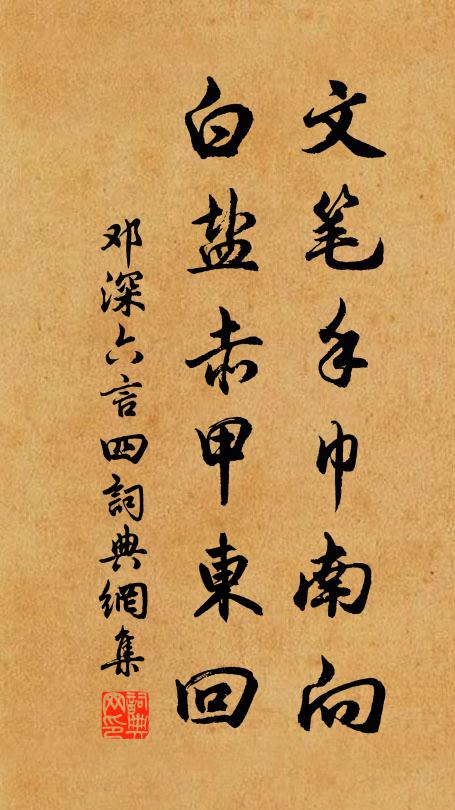 文笔手巾南向
白盐赤甲東回
邓深六言四詞典網集
詞典
网印